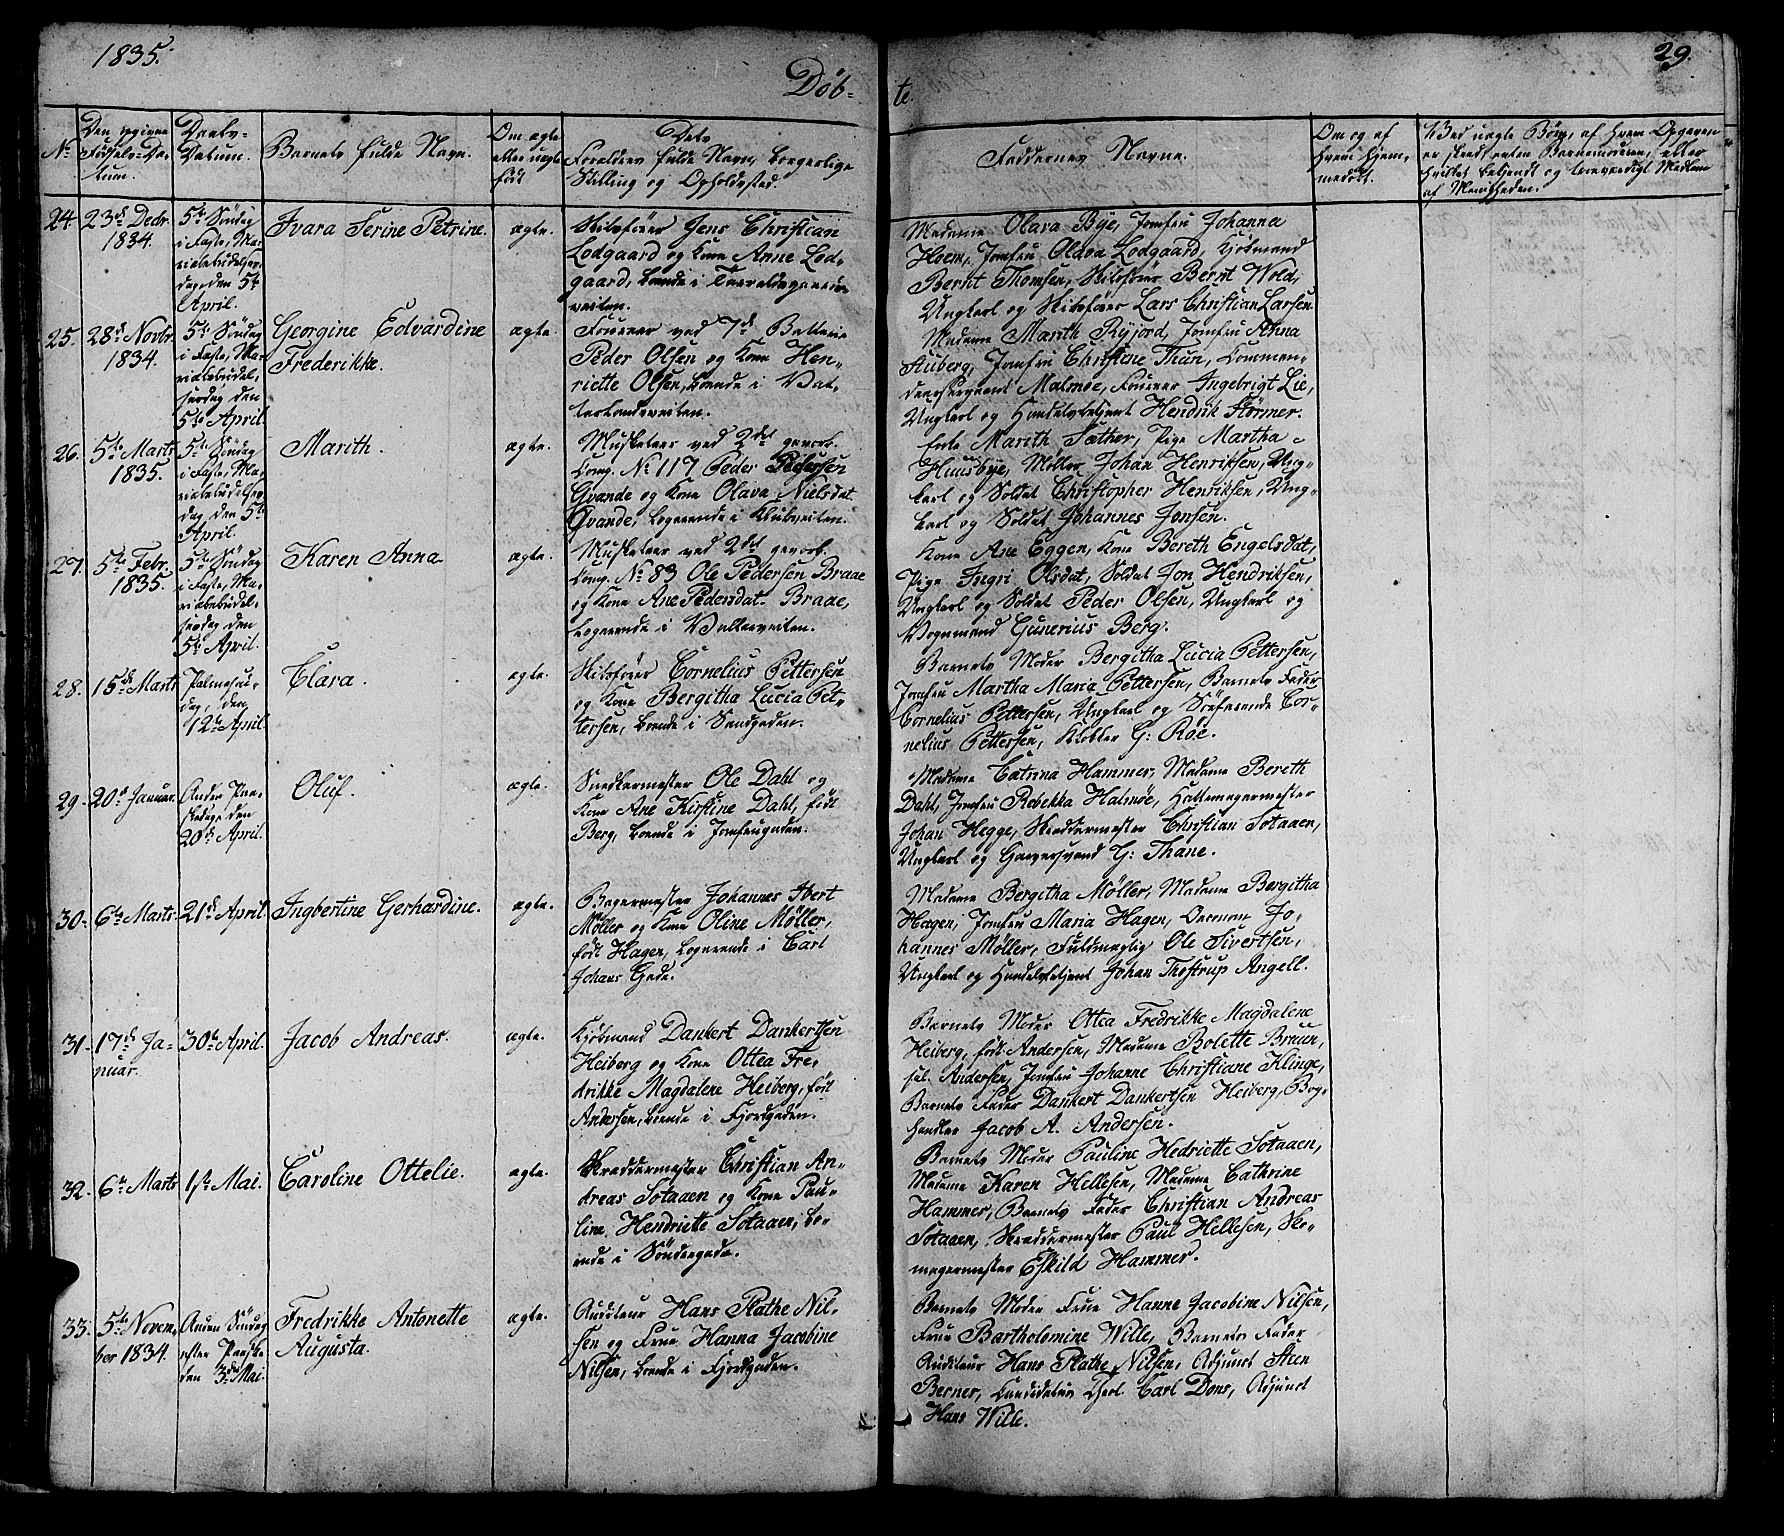 1835.
29.
Döb-
te.
No
Den opgivne
Fødsels-Da-
tum.
Daabs-
Datum.
Barnets fulde Navn.
Om ægte
eller uægte
født
Dets
Forældres fulde Navn, borgerlige
Stilling og Opholdssted.
Faddernes Navne.
Om og af
hvem hjem-
medøbt.
Ved uægte Børn, af hvem Opgaven
er skeedt enten Barnemoderen, eller
hvilket bekjendt og troeværdigt Medlem
af Menigheden.
24.
23de Decbr.
1834.
5te Søndag
i Faste, Ma-
riæbebudelses-
dag, den 5te
April.
Ivara Serine Petrine.
ægte.
Skibsfører Jens Christian
Lodgaard og Kone Anne Lod-
gaard, boende i
veiten.
Madame Olava Bye, Jomfru Johanna
Hoem, Jomfru Olava Lodgaard, Kjöbmand
Bernt Thomsen, Skibsfører Bernt Wold,
Ungkarl og Skibsfører Lars Christian Larsen.
25.
28de Novbr.
1834.
5te Söndag
i Faste, Ma-
riæbebudel-
sesdag den
5te April.
Georgine Edvardine
Frederikke.
ægte.
Foureer ved 7de Batterie
Peder Olsen og Kone Hen-
riette Olsen, boende i Vat-
terlandsveiten.
Madame Marith Byjord, Jomfru Anna
Stuberg, Jomfru Christine Thun, Comman-
deersergeant Malmoe, Foureer Ingebrigt Lie,
Ungkarl og Handelsbetjent Hendrik Störmer.
26.
5te Marts
1835.
5te Söndag
i Faste, Ma-
riæbebudelses-
dag den 5te
April.
Marith.
ægte.
Musketeer ved 2det gevorb.
Comp. No 117 Peder Pedersen
Qvande og Kone Olava Nielsdat.
Qvande, logerende i Klubveiten.
Enke Marith Sæther, Pige Martha
Huusbye, Møller Johan Henriksen, Ung-
karl og Soldat Christopher Henriksen, Ung-
karl og Soldat Johannes Jonsen.
27.
5te Febr.
1835.
5te Söndag
i Faste, Ma-
riæbebudel-
sesdag den
5te April.
Karen Anna
ægte.
Musketeer ved 2det gevorb.
Comp. No 83 Ole Pedersen Braae
og Kone Ane Pedersdat. Braae,
logerende i Vatterveiten.
Kone Ane Eggen, Kone Bereth Engelsdat,
Pige Ingri Olsdat, Soldat Jon Hendriksen,
Ungkarl og Soldat Peder Olsen, Ungkarl og
Vognmand Gunerius Berg.
28.
15de Marts
Palmesön-
dag, den
12te April
Clara.
ægte.
Skibsfører Cornelius Pettersen
og Kone Bergitha Lucia Pet-
tersen, boende i Sandgaden.
Barnets Moder Bergitha Lucia Pettersen,
Jomfru Martha Maria Pettersen, Barnets Fader
Cornelius Pettersen, Ungkarl og Söefarende Cor-
nelius Pettersen, Klokker G: Röe.
29.
20de Januar.
Anden Paa-
skedag, den
20de April.
Oluf.
ægte.
Snedkermester Ole Dahl og
Kone Ane Kirstine Dahl, født
Berg, boende i Jomfrugaden.
Madame Catrina Hammer, Madame Bereth
Dahl, Jomfru Rebekka Halmöe, Hattemagermester
Johan Hegge, Skreddermester Christian Sotaaen,
Ungkarl og Garversvend G: Thane.
30.
6te Marts
21de April
Ingbertine Gerhardine.
ægte.
Bagermester Johannes Ibert
Møller og Kone Oline Møller,
født Hagen, logerende i Carl
Johans Gade.
Madame Bergitha Møller, Madame Bergitha
Hagen, Jomfru Maria Hagen, Oeconom Jo-
hannes Møller, Fuldmægtig Ole Sivertsen,
Ungkarl og Handelsbetjent Johan Thostrup Angell.
31.
17de Ja-
nuar.
30te April.
Jacob Andreas.
ægte.
Kjöbmand Dankert Dankertsen
Heiberg og Kone Ottea Fre-
drikke Magdalene Heiberg, født
Andersen, boende i Fjordgaden.
Barnets Moder Ottea Fredrikke Magdalene
Heiberg, født Andersen, Madame Bolette Bruun,
sal. Andersen, Jomfru Johanne Christiane Klinge,
Barnets Fader Dankert Dankertsen Heiberg, Bog-
handler Jacob A. Andersen.
32.
6te Marts
1ste Mai.
Caroline Ottelie.
ægte.
Skreddermester Christian An-
dreas Sotaaen og Kone Pau-
line Hendriette Sotaaen, bo-
ende i Söndregade.
Barnets Moder Pauline Hedriette Sotaaen,
Madame Karen Hellesen, Madame Cathrine
Hammer, Barnets Fader Christian Andreas
Sotaaen, Skreddermester Paul Hellesen, Sko-
magermester Eskild Hammer.
33.
5te Novem-
ber 1834.
Anden Söndag
efter Paaske
den 3die Mai
Fredrikke Antonette
Augusta.
ægte.
Auditeur Hans Plathe Nil-
sen og Frue Hanna Jacobine
Nilsen, boende i Fjordgaden.
Barnets Moder Frue Hanne Jacobine Nilsen,
Frue Bartholomine Wille, Barnets Fader
Auditeur Hans Plathe Nilsen, Adjunct Steen
Berner, Candidatus Theol. Carl Dons, Adjunct
Hans Wille.